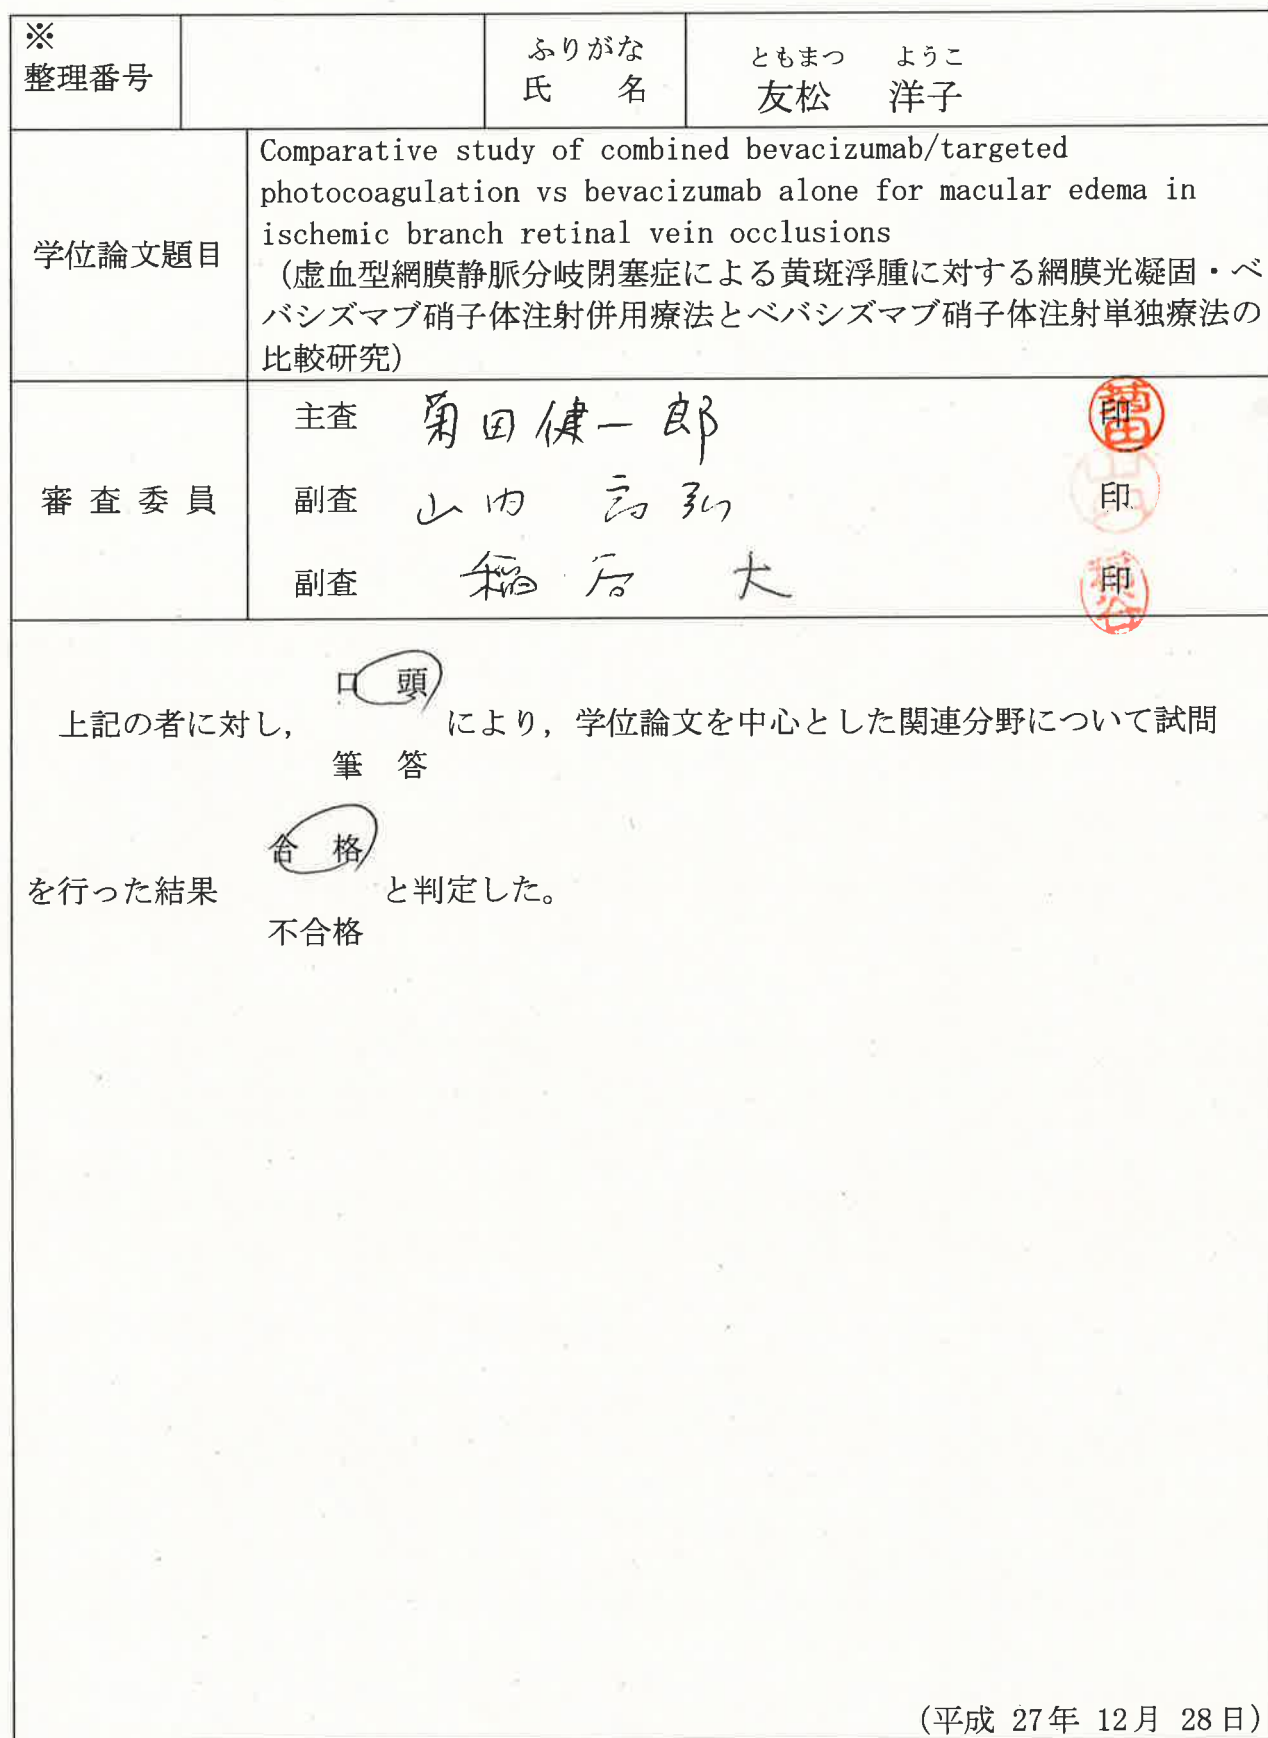 ※
整理番号
ふりがな
氏 名
ともまつ ようこ
友松 洋子
学位論文題目
Comparative study of combined bevacizumab/targeted
photocoagulation vs bevacizumab alone for macular edema in
ischemic branch retinal vein occlusions
(虚血型網膜静脈分岐閉塞症による黄斑浮腫に対する網膜光凝固・ベ
バシズマブ硝子体注射併用療法とベバシズマブ硝子体注射単独療法の
比較研究)
審査委員
主査 菊田健一郎 印
副査 山内 高弘 印
副査 稲谷 大 印
口 頭
上記の者に対し, により, 学位論文を中心とした関連分野について試問
筆 答
合 格
を行った結果 と判定した。
不合格
(平成 27年 12月 28日)